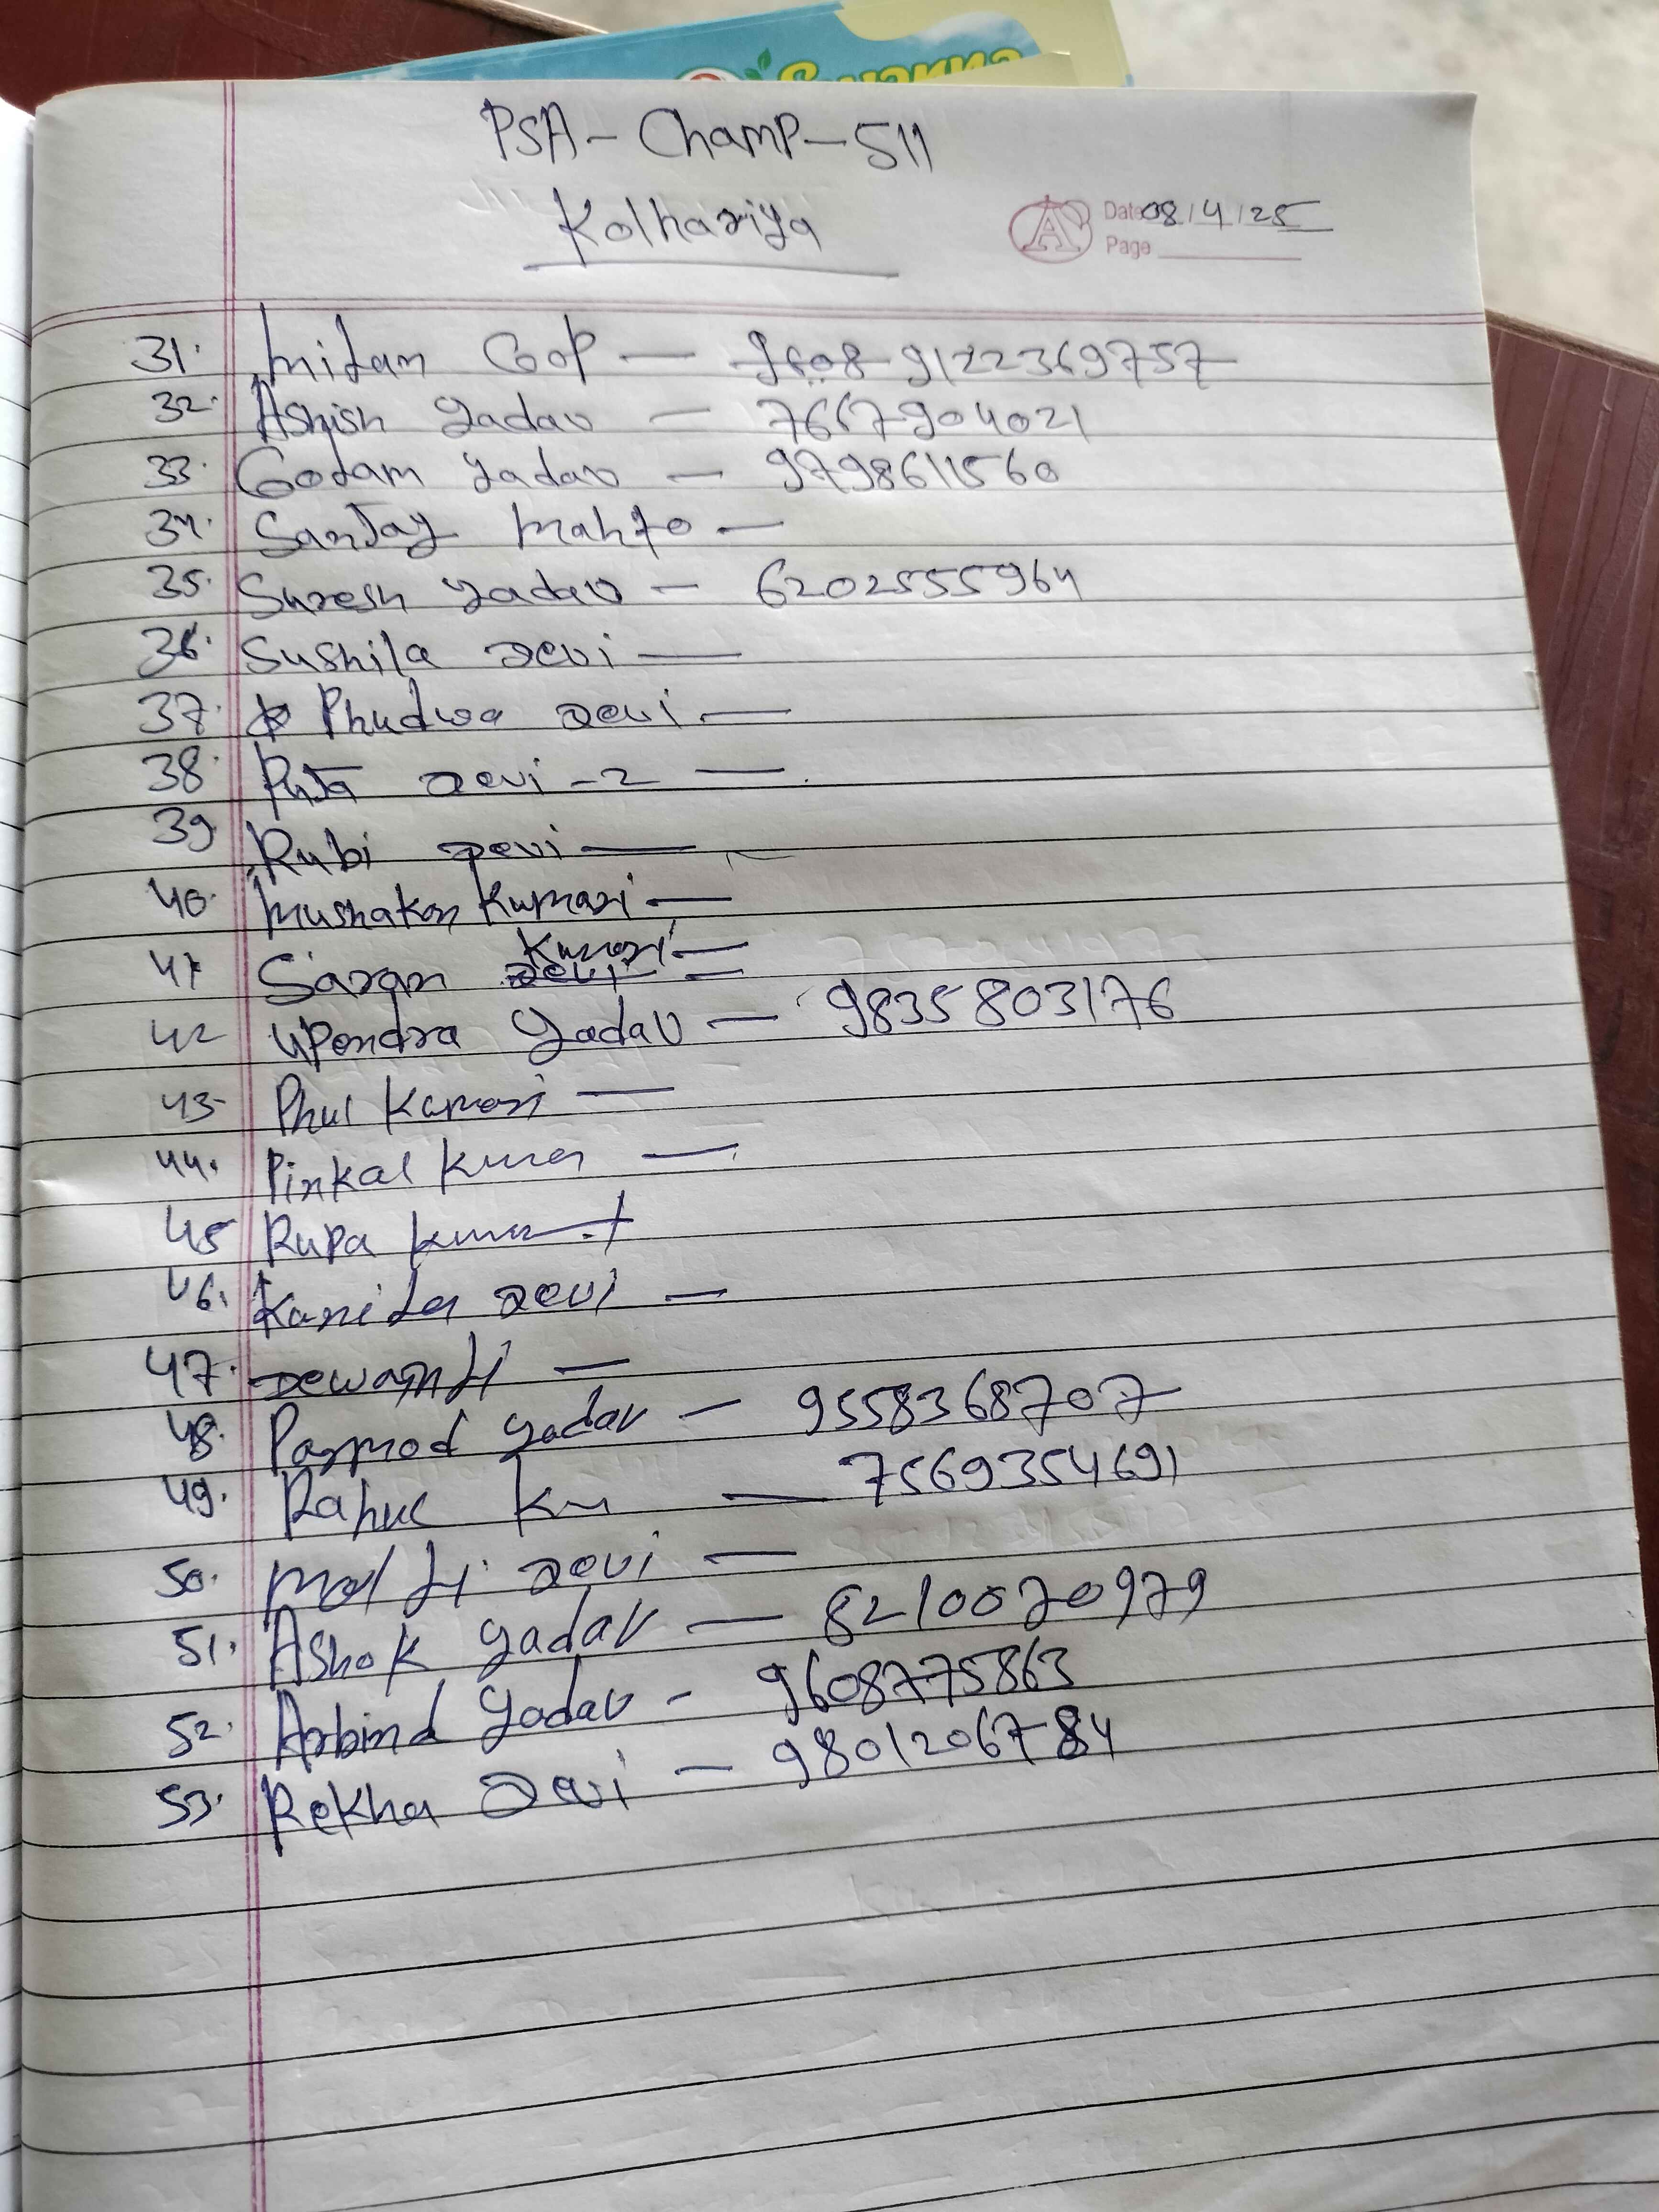 Savanna
PSA - Champ - 511
Kolhariya
Date 08/4/25
Page
31. Mitam Gop — 9608 9122369757
32. Ashish Yadav — 7667904021
33. Gotam Yadav — 9798611560
34. Sanjay Mahto —
35. Suresh Yadav — 6202555964
36. Sushila Devi —
37. Phudwa Devi —
38. Puja Devi - 2 —
39. Rubi Devi —
40. Mushakan Kumari —
41. Saran Devi Kumari —
42 Upendra Yadav — 9835803176
43- Phul Kumari —
44. Pinkal —
45 Rupa
46. Devi —
47. —
48. Parmod Yadav — 9558368707
49. Rahul Ku — 7569354691
50. Devi —
51. Ashok Yadav — 8210070979
52. Arbind Yadav - 9608775863
53. Rekha Devi — 9801206784